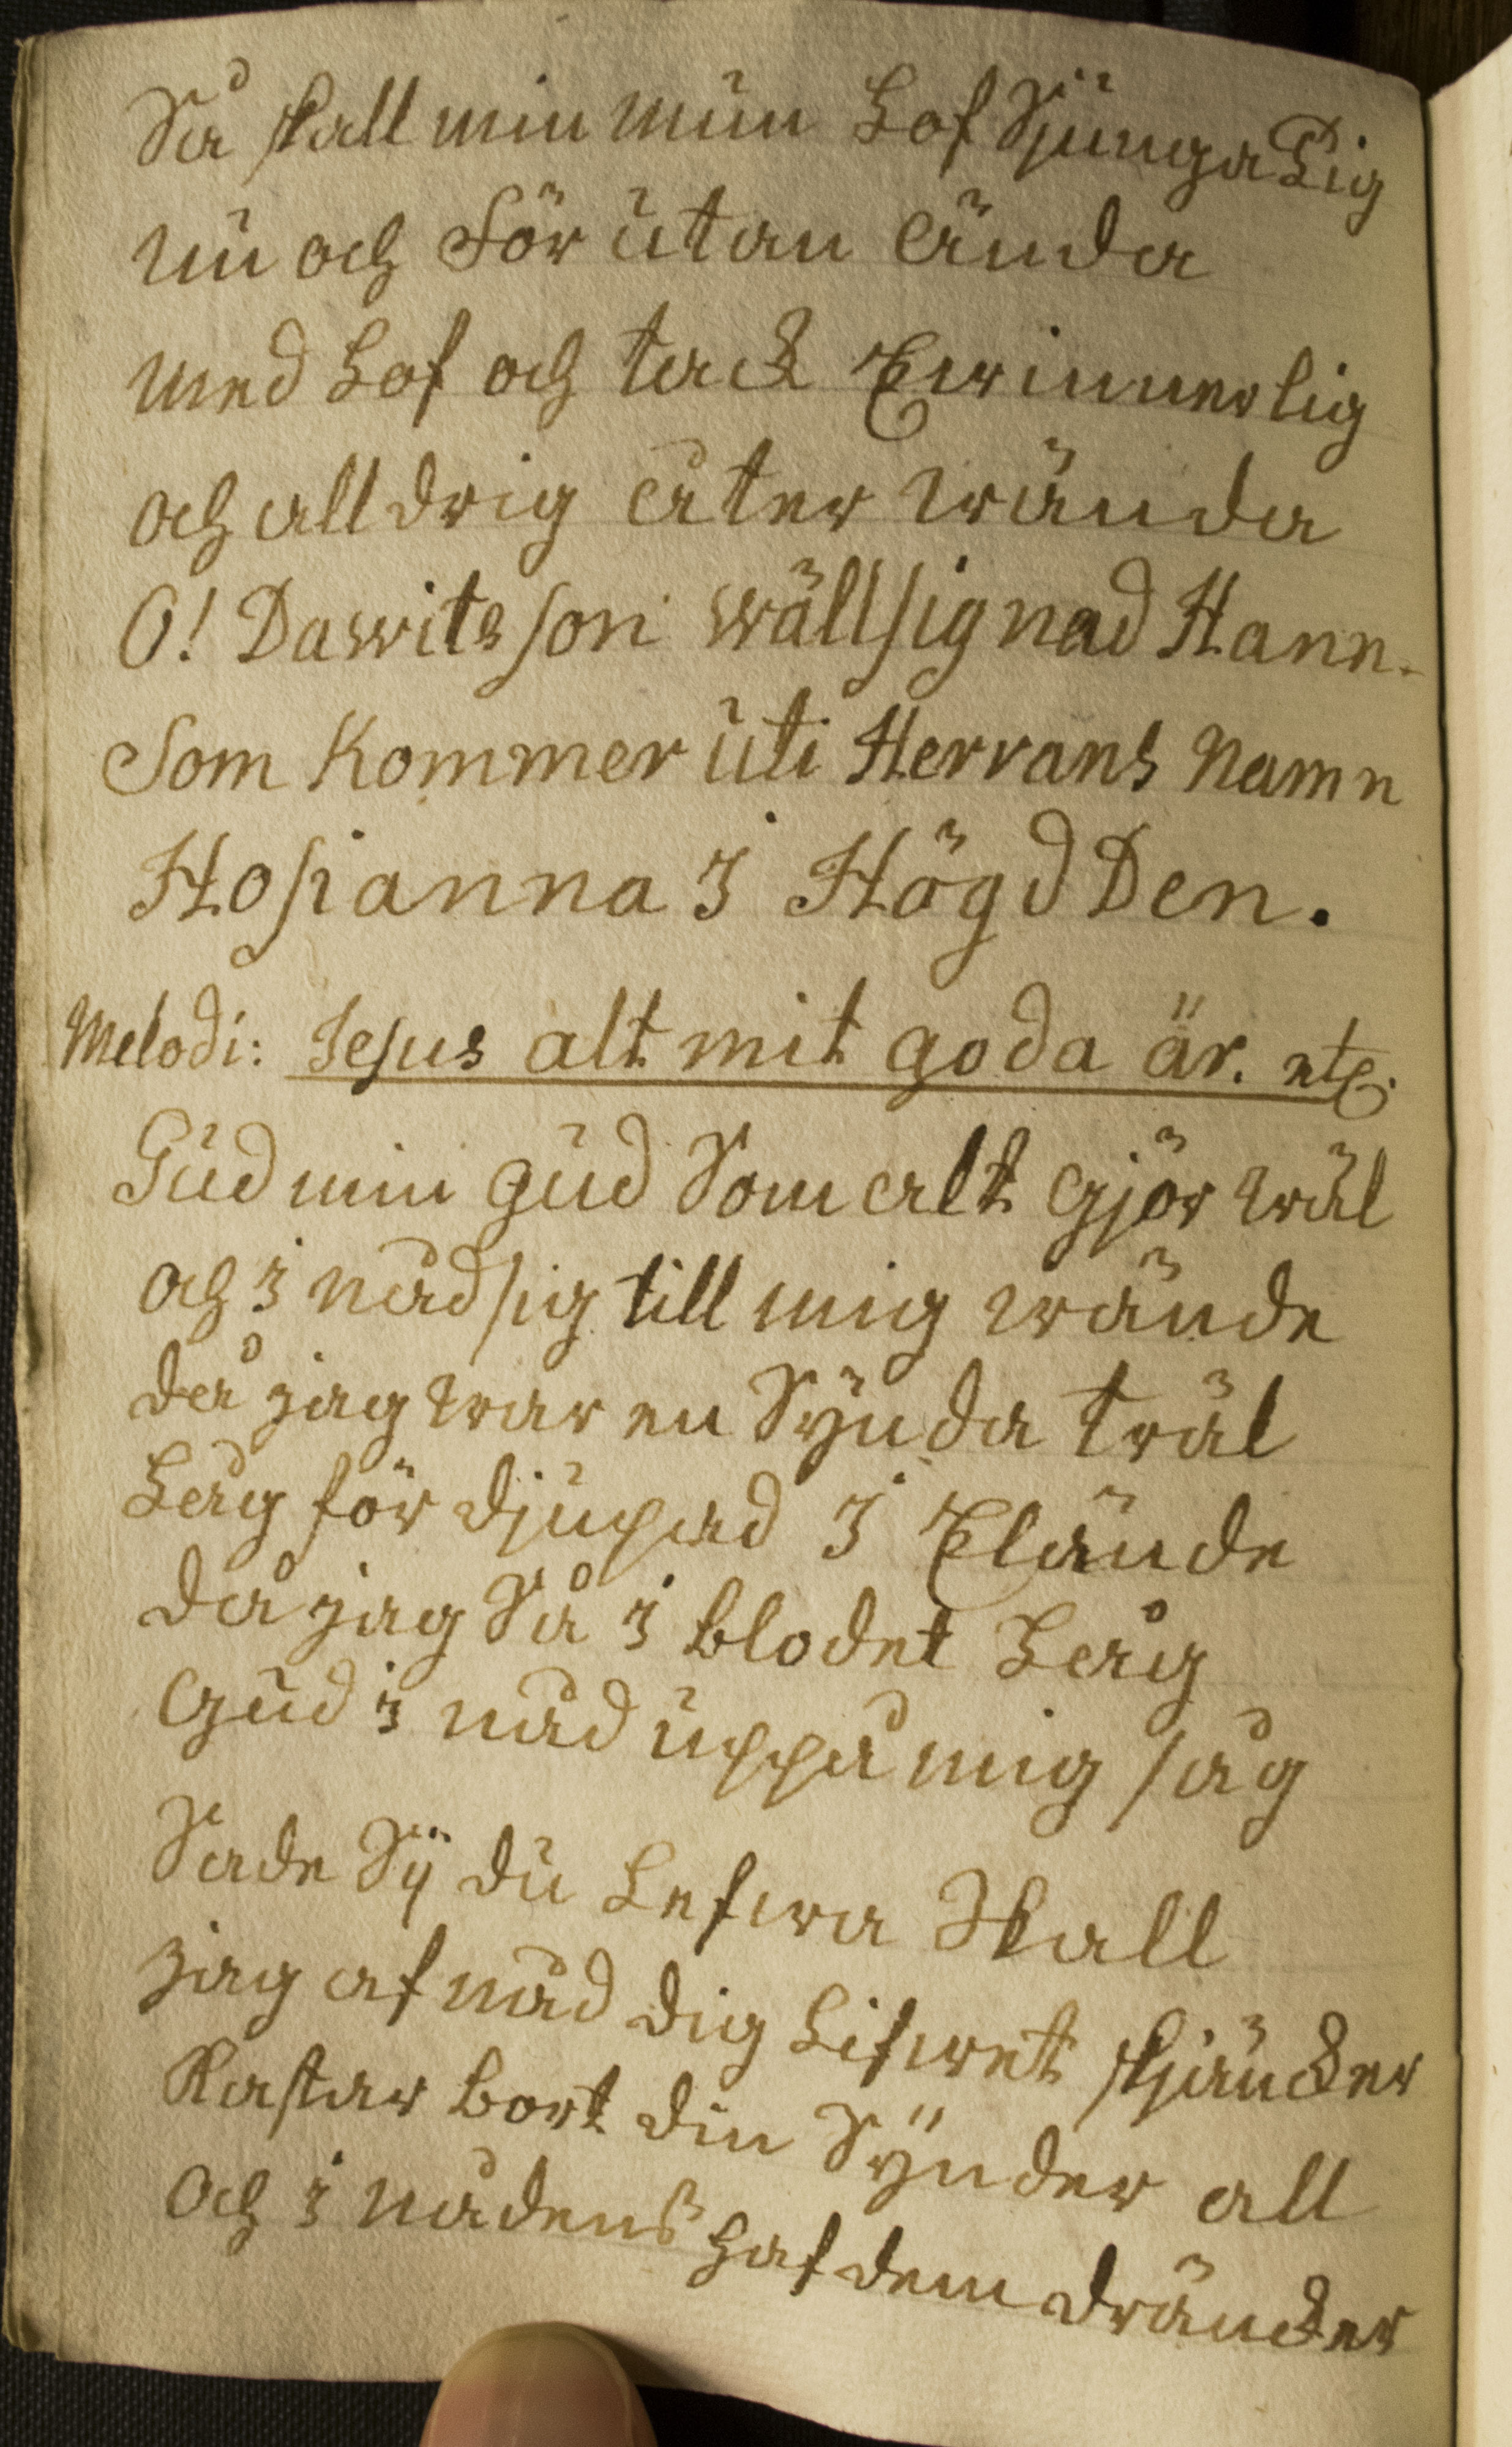 Så skall min mun Lof Sjunga Dig
nu och För utan ända
med Lof och tack Erinnerlig
och alldrig åter wända
O! Dawits son wällsignad Hann.
Som Kommer uti Herrans Namn
Hosianna i Högd Den.
Melodi: Jesus alt mit goda är. etc.
Gud min Gud Som alt gjör wäl
och i nåd sig till mig wände
då jag war en Synda träl
Låg för djupad i Elände
då jag Så i blodet Låg
Gud i nåd uppå mig såg
Sade Sy du Lefwa Skall
jag af nåd dig Lifwet skjäncker
Kastar bort din Synder all
och i nådens haf dem dräncker